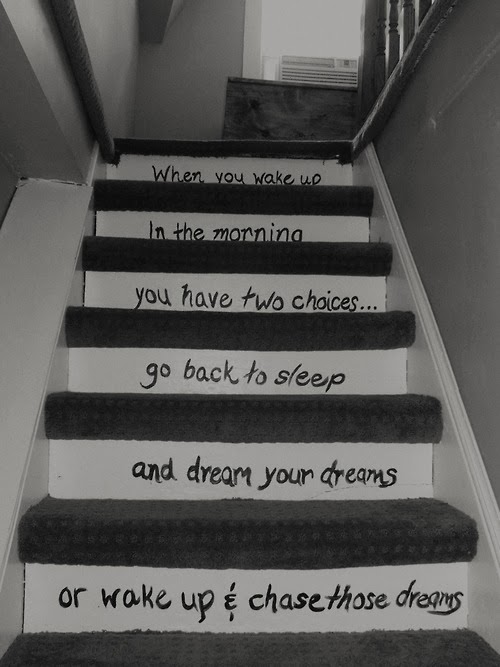 When you wake up
In the morning
you have two choices...
go back to sleep
and dream your dreams
or wake up & chase those dreams